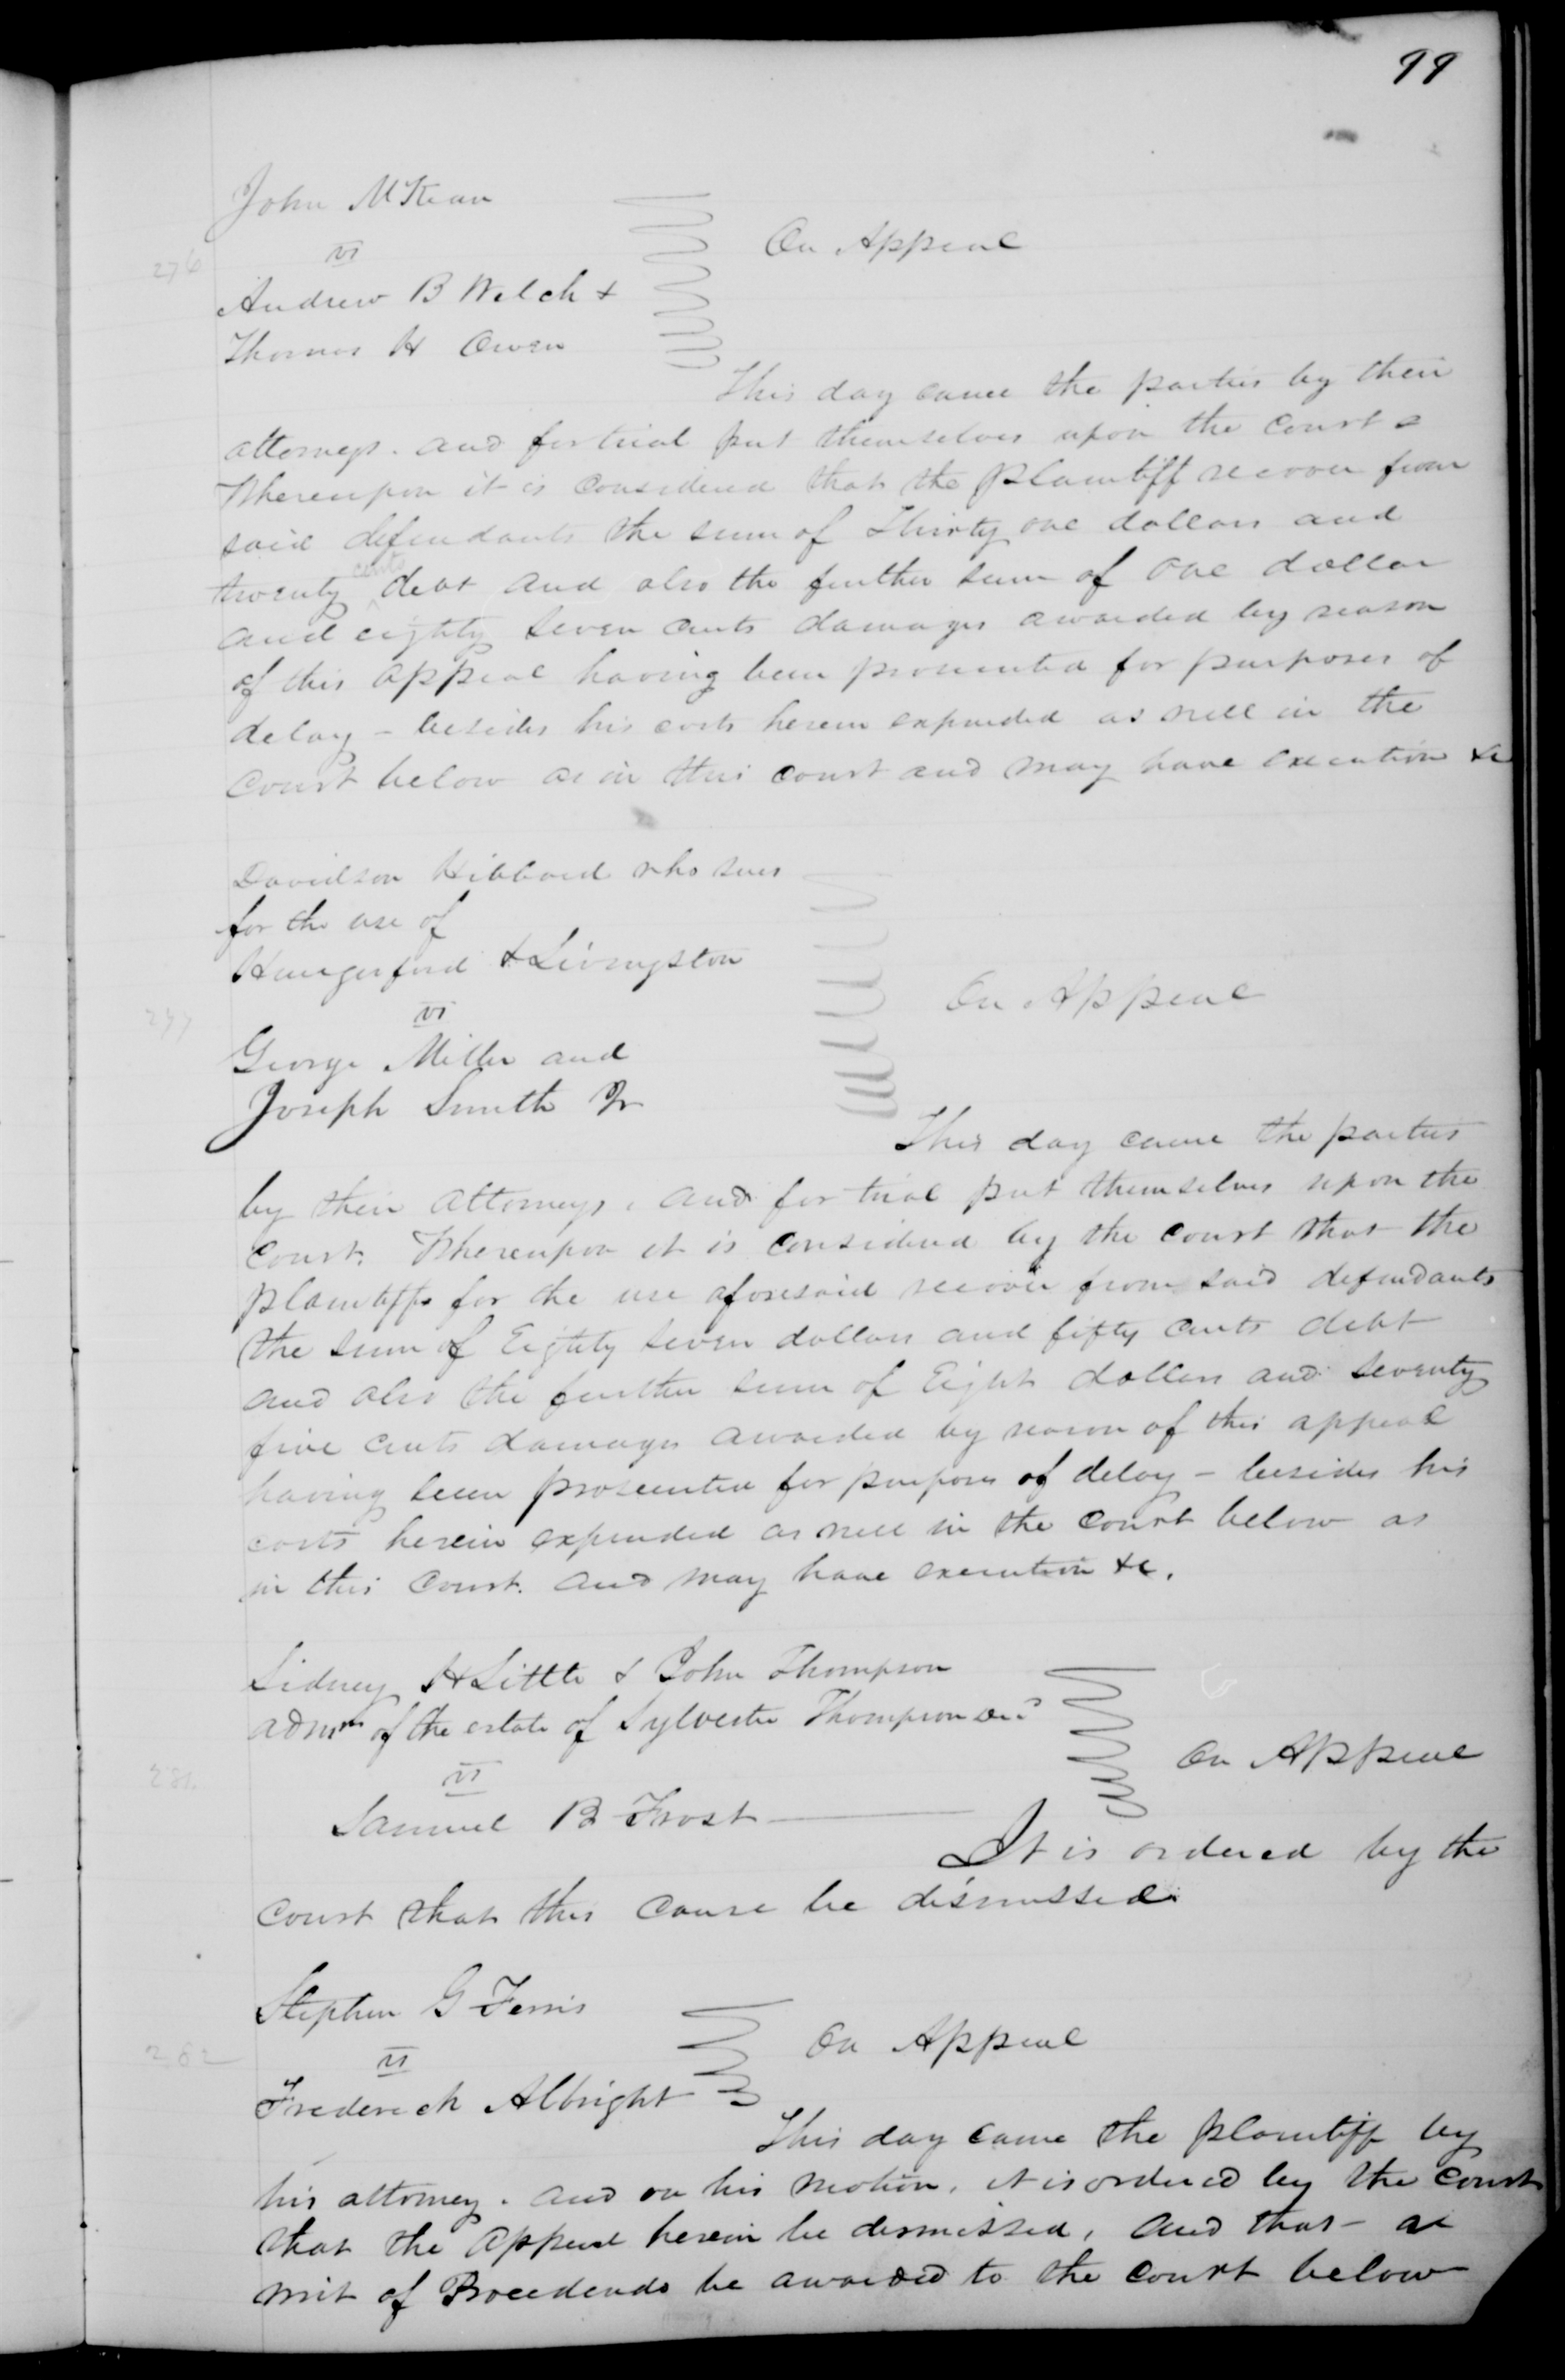 99
John McKean
vs
276
Andrew B Welch &
Thomas H Owen
On Appeal
This day came the parties by their
attorneys. and for trial put themselves upon the Court &
Whereupon it is Considered that the Plaintiff recover from
said defendants the sum of Thirty one dollars and
twenty cents debt and also the further sum of one dollar
and eighty seven cents damages awarded by reason
of this appeal having been prosecuted for purposes of
delay - besides his costs herein expended as well in the
Court below as in this Court and may have execution &c
Davidson Hibbard who sues
for the use of
Hungerford & Livingston
vs
277
George Miller and
Joseph Smith Jr
On Appeal
This day came the parties
by their attorneys, and for trial put themselves upon the
Court. Whereupon it is Considered by the Court that the
Plaintiffs for the use aforesaid recover from said defendants
the sum of Eighty seven dollars and fifty cents debt
and also the further sum of Eight dollars and seventy
five cents damages awarded by reason of this appeal
having been prosecuted for purposes of delay - besides his
costs herein expended as well in the Court below as
in this Court. and may have execution &c.
Sidney H Little & John Thompson
admrs of the estate of Sylvester Thompson decd
vs
281.
Samuel B Frost
On Appeal
It is ordered by the
Court that this Cause be dismissed.
Stephen G Ferris
vs
282
Frederick Albright
On Appeal
This day came the plaintiff by
his attorney. and on his motion, it is ordered by the Court
that the appeal herein be dismissed, and that a
writ of Procedendo be awarded to the Court below